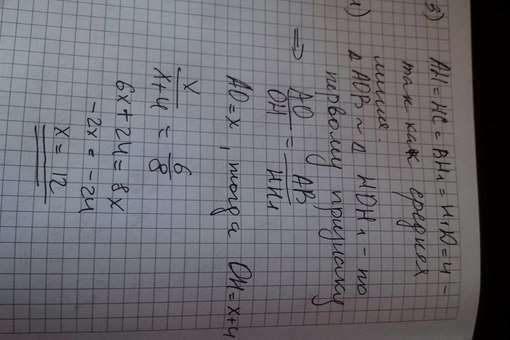 3) AH = HC = BH₁ = H₁D = 4 –
так как средняя
линия.
1) Δ AOB ~ Δ HOH₁ – по
первому признаку
⇒ AO/OH = AB/HH₁
AO = x, тогда OH = x+4
x/x+4 = 6/8
6x + 24 = 8x
-2x = -24
x = 12